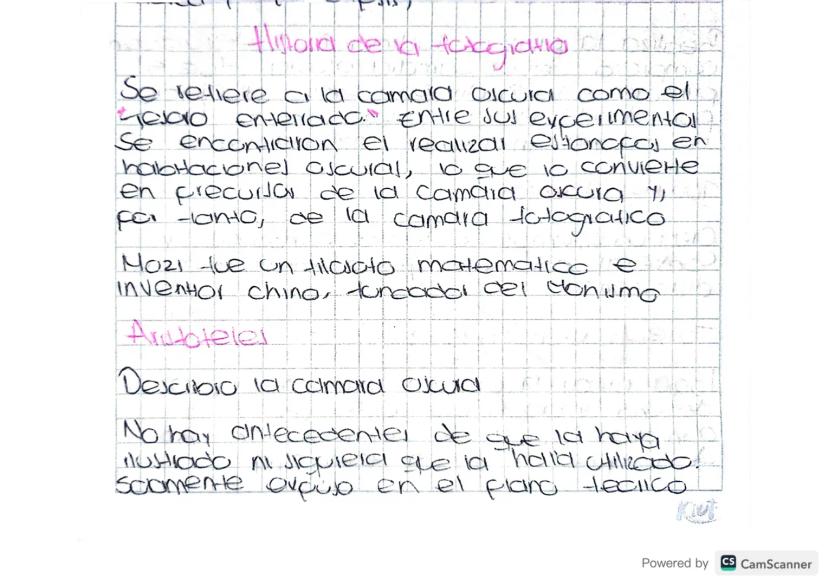 Historia de la fotografia
Se refiere a la camara oscura como el
"tesoro enterrado." Entre sus experimental
se encontraron el realizar estenopos en
habitaciones oscuras, lo que lo convierte
en precursor de la camara oscura y,
por tanto, de la camara fotografico
Mozi fue un filosofo matematico e
inventor chino, fundador del
Aristoteles
Describio la camara oscura
No hay antecedentes de que la haya
ilustrado ni siquiera que la halla utilizado.
solamente expuso en el plano teorico
Kiut
Powered by CS CamScanner